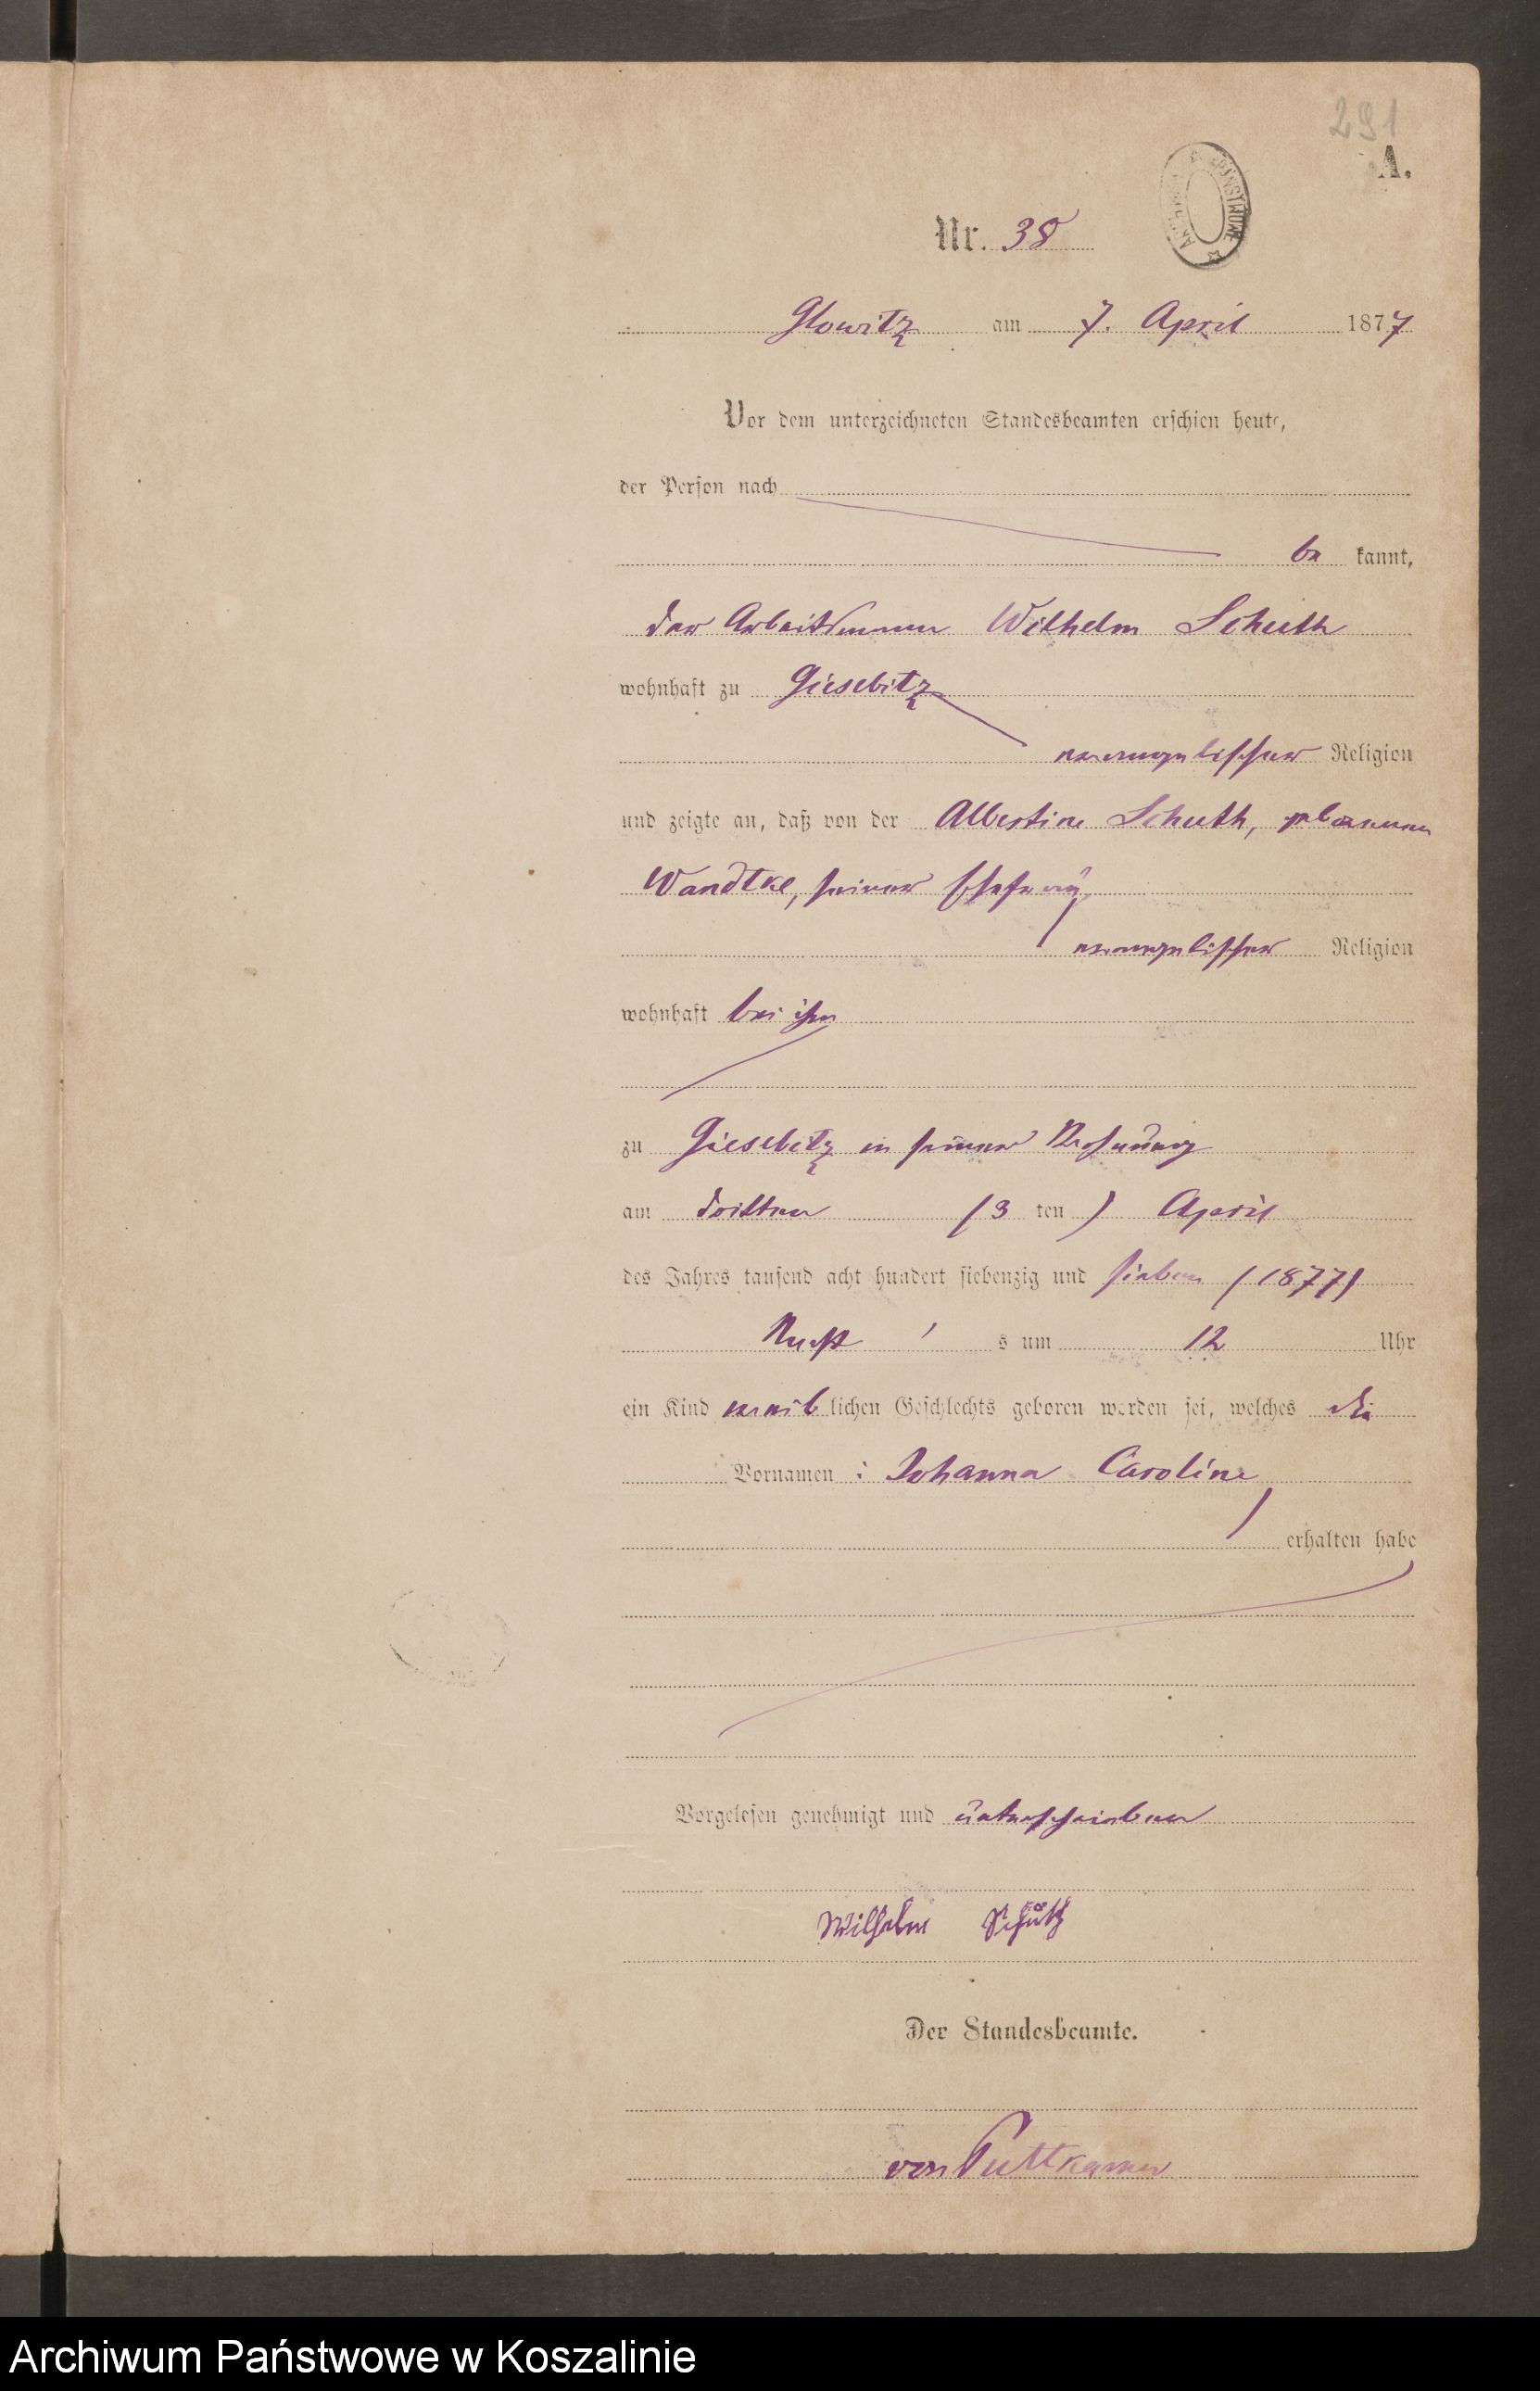 291
A.
Nr. 38
Glowitz am 7. April 1877
Vor dem unterzeichneten Standesbeamten erschien heute,
der Person nach
be kannt,
der Arbeitsmann Wilhelm Scheeth
wohnhaft zu Giesebitz
evangelischer Religion
und zeigte an, daß von der Albertine Scheeth, geborenen
Wandtke, seiner Ehefrau
evangelischer Religion
wohnhaft bei ihm
zu Giesebitz in seiner Wohnung
am dritten (3 ten) April
des Jahres tausend acht hundert siebenzig und sieben (1877)
Nacht s um 12 Uhr
ein Kind weib lichen Geschlechts geboren worden sei, welches die
Vornamen : Johanna Caroline
erhalten habe
Vorgelesen genehmigt und unterschrieben
Wilhelm Schütz
Der Standesbeamte.
von Puttkamer
Archiwum Państwowe w Koszalinie